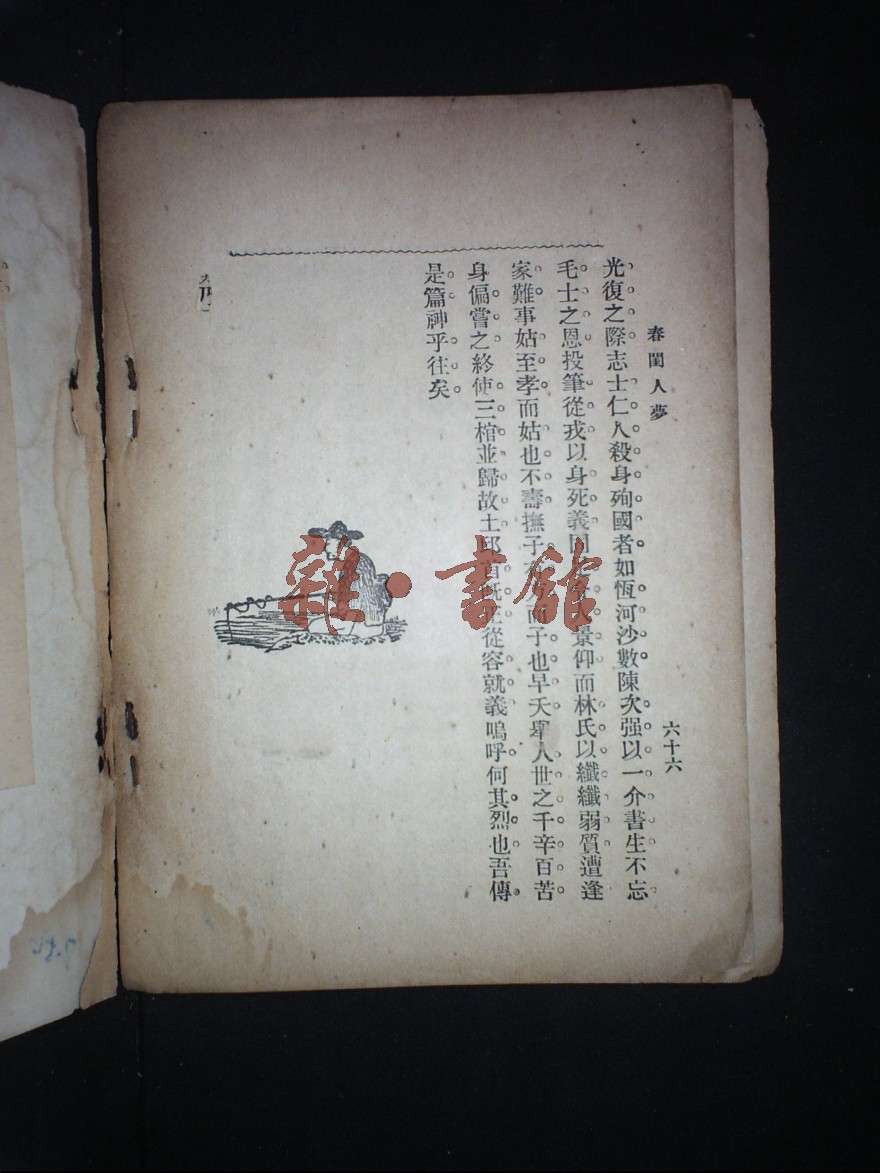 春閨人夢
六十六
光復之際志士仁人殺身殉國者如恆河沙數陳次强以一介書生不忘
毛士之恩投筆從戎以身死義景仰而林氏以纖纖弱質遭逢
家難事姑至孝而姑也不壽撫子而子也早夭舉人世之千辛百苦
身偏嘗之終使三棺並歸故土邱首從容就義嗚呼何其烈也吾傳
是篇神乎往矣
雜·書館